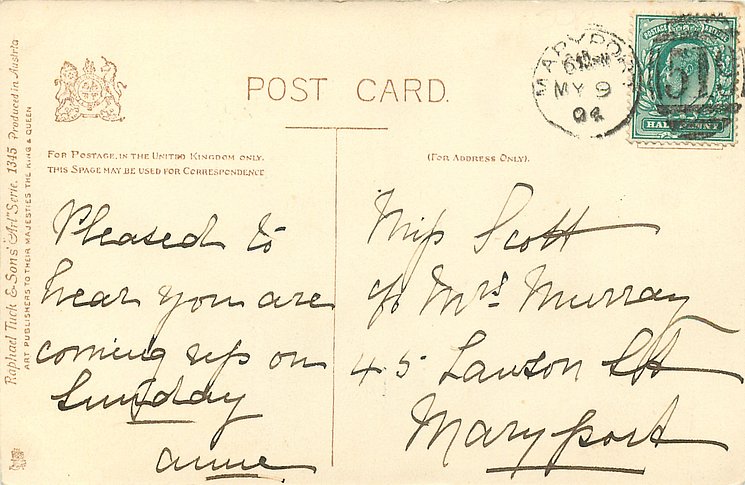 POST CARD.
MARYPORT
MY 9
04
POSTAGE
515
HALFPENNY
FOR POSTAGE IN THE UNITED KINGDOM ONLY.
THIS SPACE MAY BE USED FOR CORRESPONDENCE
(FOR ADDRESS ONLY).
Pleased to
hear you are
coming up on
Sunday
Annie
Miss Scott
c/o Mrs Murray
45 Lawson St
Maryport
Raphael Tuck & Sons' "Art" Serie. 1345 Produced in Austria
ART PUBLISHERS TO THEIR MAJESTIES THE KING & QUEEN